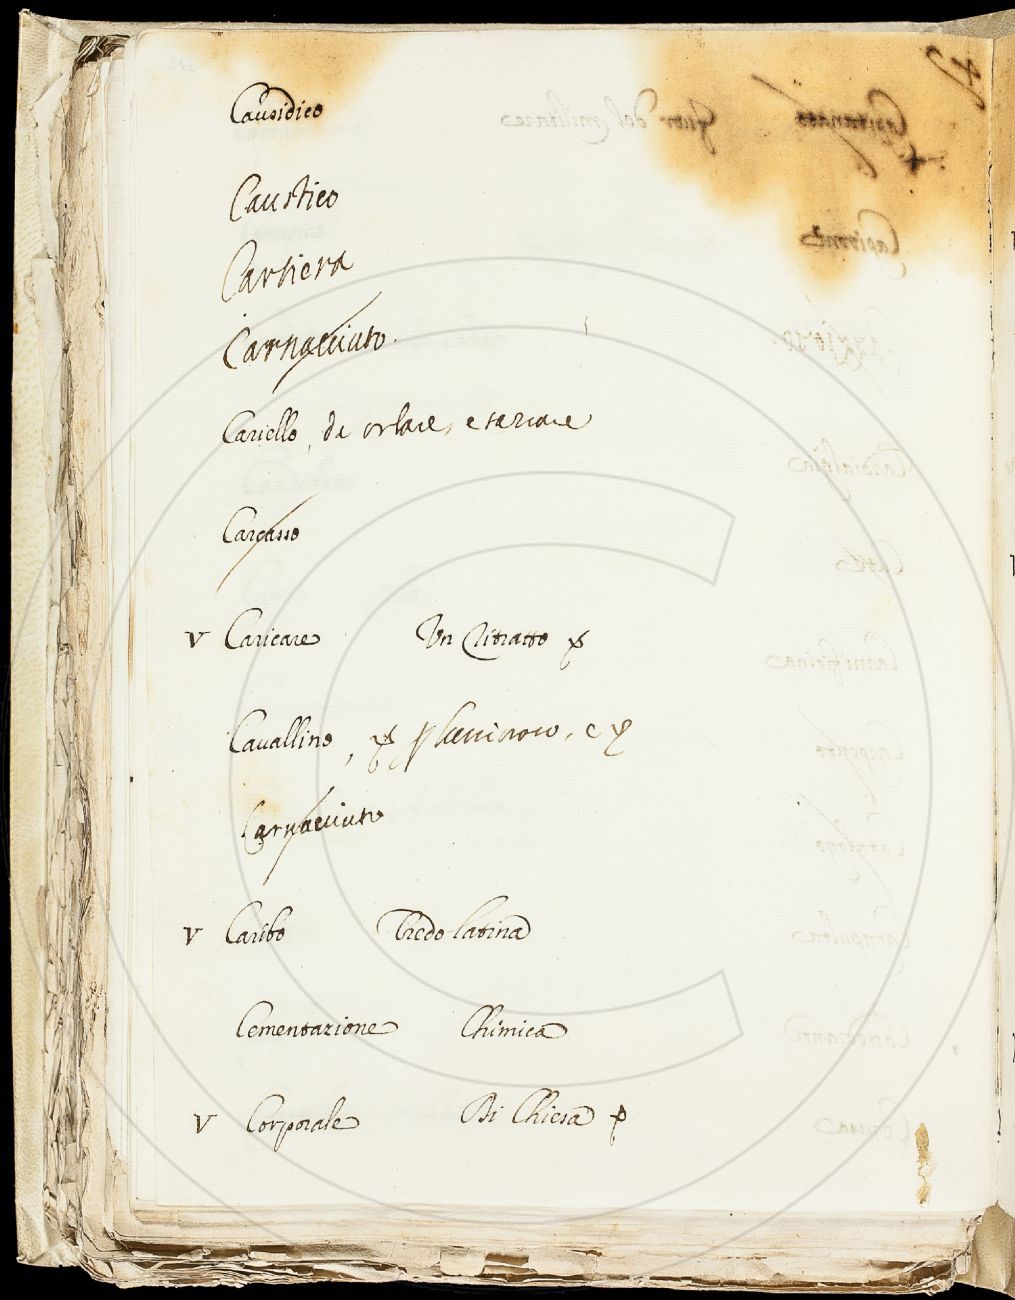 Causidico
Caustico
Cartiera
Carnacciuto.
Cariello, da orlare, e
Carcasso
V Caricare Un Ritratto
Cavallino, e
Carnacciuto
V Caribo Tredo latina
Cementazione Chimica
V Corporale Di Chiesa